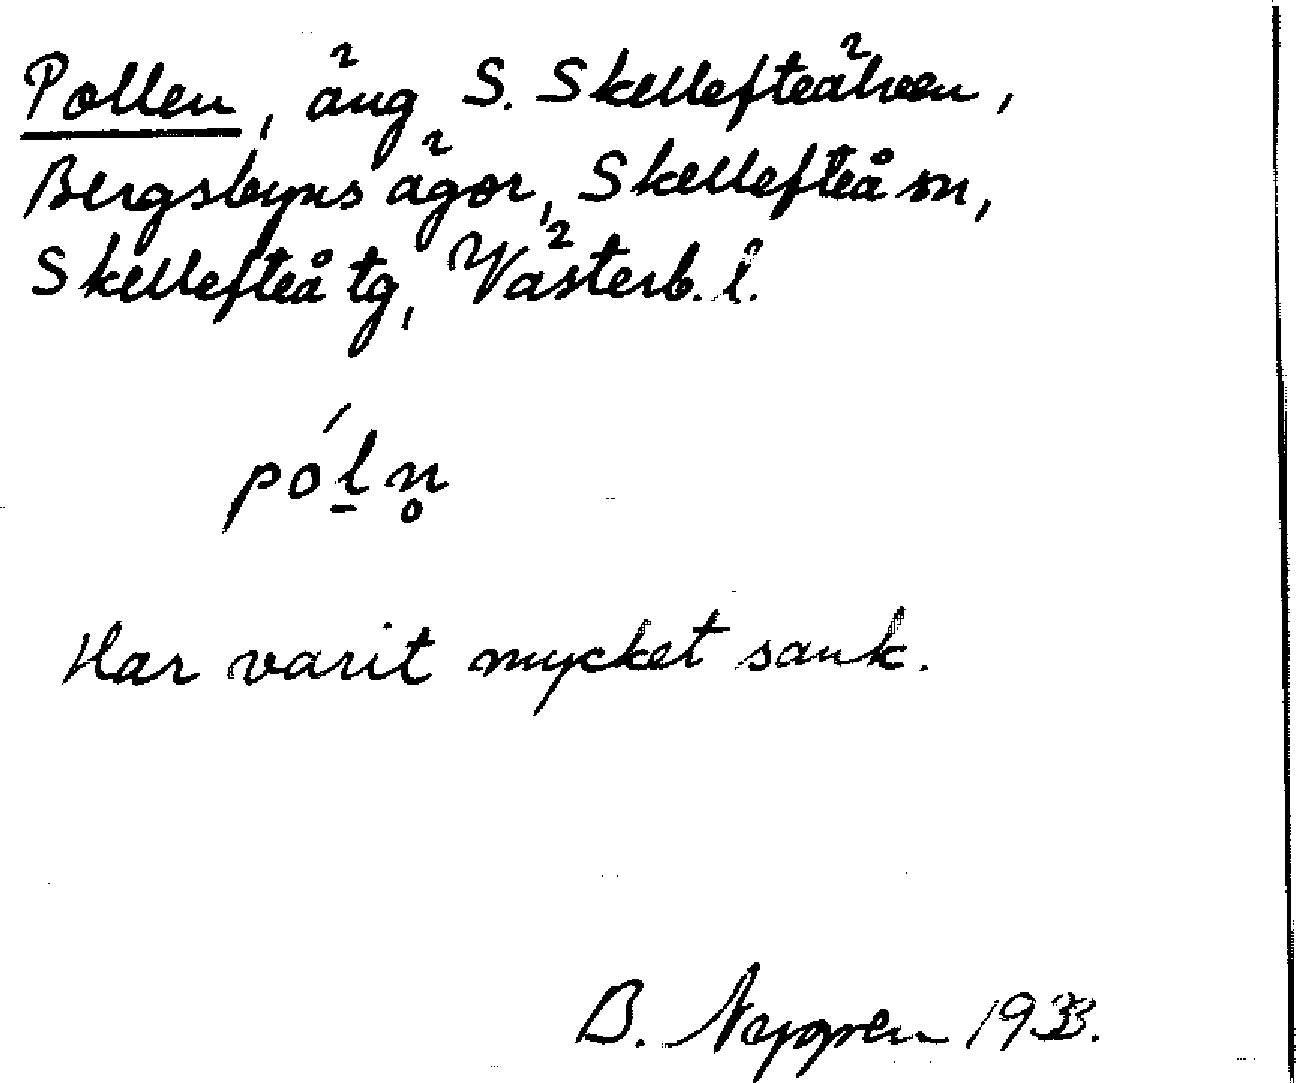 Pollen, äng S. Skellefteälven,
Bergsbyns ägor, Skellefteå sn,
Skellefteå tg, Västerb. l.
pól̠n̥
Har varit mycket sank.
B. Nygren 1933.